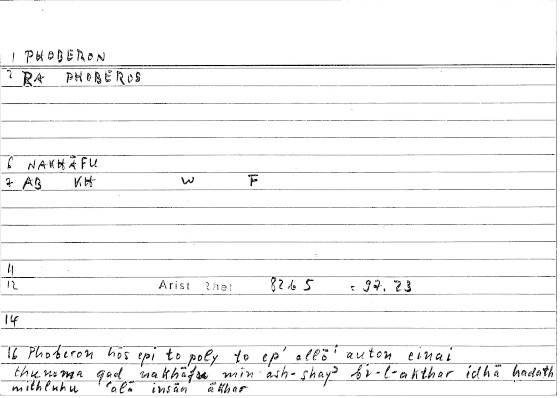 1 PHOBERON
2 RA PHOBEROS
6 NAKHĀFU
7 AB KH W F
11
12 Arist Rhet 82b5 = 97.23
14
16 Phoberon hōs epi to poly to ep' allō' auton einai
thumma qad nakhāfu min ash-shayʾ bi-l-akthar idhā hadath
mithluhu ʿalā insān ākhar